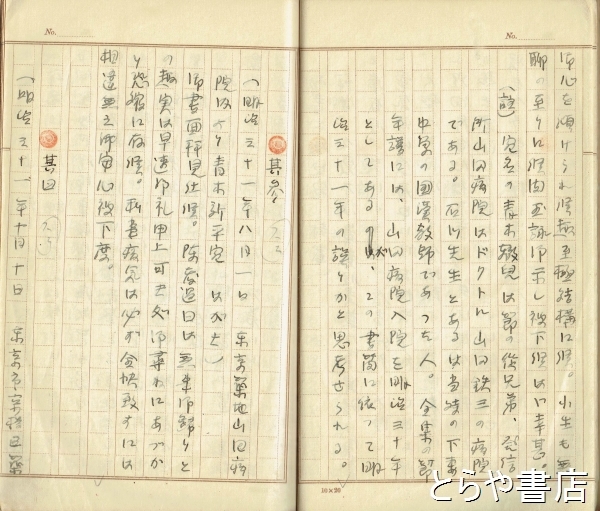 No.
御心を傾けられ候無至極結構に候。小生も無
聊の至りに候間玉詠御示し被下候はゞ幸甚。
(註) 宛名の青木敬児は節の従兄弟、発信
所山田病院はドクトル山田鉄三の病院
である。石川先生とあるは当時の下妻
中学の国漢教師であつた人。全集の節
年譜には、山田病院入院を明治三十年
としてあるが、この書簡に依つて明
治三十一年の誤りかと思考せられる。
10×20
No.
其参
(明治三十一年八月一日 東京築地山田病
院内より青木新平宛 はがき)
御書面拝見仕候。陳者過日は無事御帰りと
の趣実は早速御礼申上可き処御尋ねにあづか
り恐縮に存候。私事病気は必ず全快致すには
相違無之御安心被下度。
其四
(明治三十一年十月十日 東京市京橋区築
とらや書店